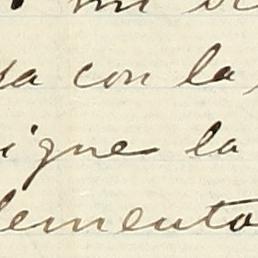 sa con la
igne la
lemento